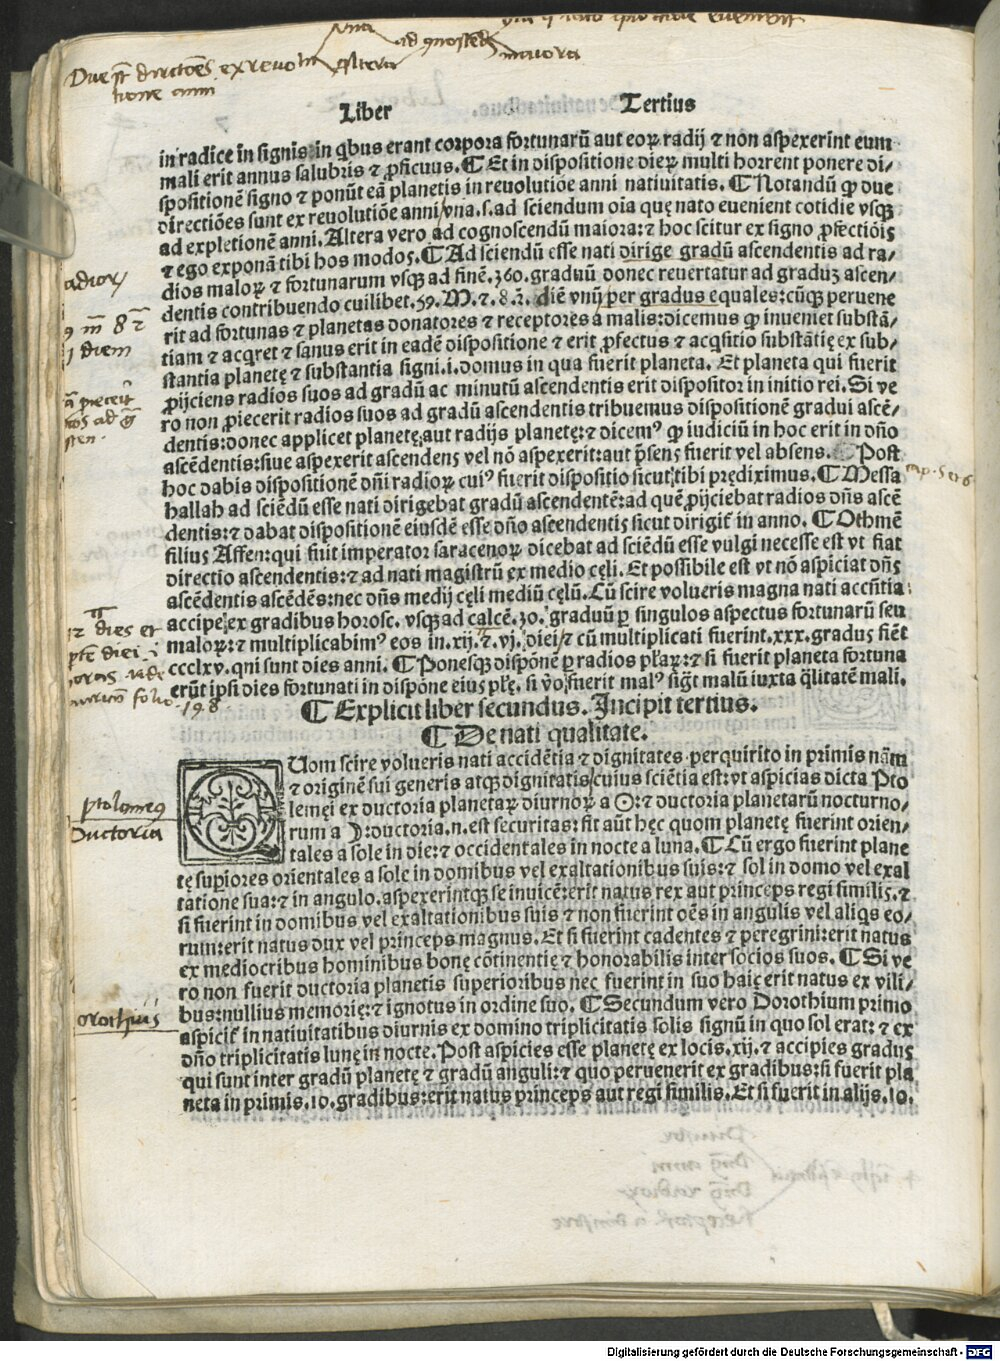 vna ad gnoscend maiora
Due st directões ex revolu altera
tione anni
Liber Tertius
in radice in signis: in qbus erant corpora fortunarũ aut eoꝝ radij ⁊ non aspexerint eum
mali erit annus salubris ⁊ ꝓficuus. ¶ Et in dispositione dieꝝ multi horrent ponere di⸗
spositionẽ signo ⁊ ponũt eã planetis in reuolutiõe anni natiuitatis. ¶ Notandũ ꝙ due
directiões sunt ex reuolutiõe anni/vna .s. ad sciendum oĩa quę nato euenient cotidie vsqꝫ
ad expletionẽ anni. Altera vero ad cognoscendũ maiora: ⁊ hoc scitur ex signo ꝓfectiõis
⁊ ego exponã tibi hos modos. ¶ Ad sciendũ esse nati dirige gradũ ascendentis ad ra⸗
dios maloꝝ ⁊ fortunarum vsqꝫ ad finẽ .360. graduũ donec reuertatur ad graduꝫ ascen⸗
dentis contribuendo cuilibet .59. M. ⁊ .8. 2. diẽ vnũ per gradus equales: cũqꝫ peruene
rit ad fortunas ⁊ planetas donatores ⁊ receptores a malis: dicemus ꝙ inueniet substã⸗
tiam ⁊ acqret ⁊ sanus erit in eadẽ dispositione ⁊ erit ꝓfectus ⁊ acqsitio substãtię ex sub⸗
stantia planetę ⁊ substantia signi .i. domus in qua fuerit planeta. Et planeta qui fuerit
ꝓijciens radios suos ad gradũ ac minutũ ascendentis erit dispositor in initio rei. Si ve
ro non ꝓiecerit radios suos ad gradũ ascendentis tribuemus dispositionẽ gradui ascẽ⸗
dentis: donec applicet planetę, aut radijs planetę: ⁊ dicemꝰ ꝙ iudiciũ in hoc erit in dño
ascẽdentis: siue aspexerit ascendens vel nõ aspexerit: aut p̃sens fuerit vel absens. ¶ Post
hoc dabis dispositionẽ dñi radioꝝ cuiꝰ fuerit dispositio sicut tibi prędiximus. ¶ Messa
hallah ad sciẽdũ esse nati dirigebat gradũ ascendentẽ: ad quẽ ꝓijciebat radios dñs ascẽ
dentis: ⁊ dabat dispositionẽ eiusdẽ esse dño ascendentis sicut dirigit̃ in anno. ¶ Othmẽ
filius Affen: qui fuit imperator saracenoꝝ dicebat ad sciẽdũ esse vulgi necesse est vt fiat
directio ascendentis: ⁊ ad nati magistrũ ex medio cęli. Et possibile est vt nõ aspiciat dñs
ascẽdentis ascẽdẽs: nec dñs medij cęli mediũ cęlũ. Cũ scire volueris magna nati accñtia:
accipe ex gradibus horosc. vsqꝫ ad calcẽ .30. graduũ ꝑ singulos aspectus fortunarũ seu
maloꝝ: ⁊ multiplicabimꝰ eos in .xij. ⁊ .vj. diei/⁊ cũ multiplicati fuerint .xxx. gradus fiẽt
ccclxv. qni sunt dies anni. ¶ Ponesqꝫ dispõnẽ ꝑ radios płaꝝ: ⁊ si fuerit planeta fortuna
erũt ipsi dies fortunati in dispõne eius płę. si ṽo fuerit malꝰ sigt̃ malũ iuxta q̃litatẽ mali.
¶ Explicit liber secundus. Incipit tertius.
¶ De nati qualitate.
QUom scire volueris nati accidẽtia ⁊ dignitates perquirito in primis nãm
⁊ originẽ sui generis atqꝫ dignitatis/cuius sciẽtia est: vt aspicias dicta Pto
lemęi ex ductoria planetaꝝ diurnoꝝ a ☉: ⁊ ductoria planetarũ nocturno⸗
rum a ☽: ductoria .n. est securitas: fit aũt hęc quom planetę fuerint orien⸗
tales a sole in die: ⁊ occidentales in nocte a luna. ¶ Cũ ergo fuerint plane
tę supiores orientales a sole in domibus vel exaltationibus suis: ⁊ sol in domo vel exal
tatione sua: ⁊ in angulo, aspexerintqꝫ se inuicẽ: erit natus rex aut princeps regi similis, ⁊
si fuerint in domibus vel exaltationibus suis ⁊ non fuerint oẽs in angulis vel aliqs eo⸗
rum: erit natus dux vel princeps magnus. Et si fuerint cadentes ⁊ peregrini: erit natus
ex mediocribus hominibus bonę cõtinentię ⁊ honorabilis inter socios suos. ¶ Si ve
ro non fuerit ductoria planetis superioribus nec fuerint in suo haiç erit natus ex vili⸗
bus: nullius memorię: ⁊ ignotus in ordine suo. ¶ Secundum vero Dorothium primo
aspicit̃ in natiuitatibus diurnis ex domino triplicitatis solis signũ in quo sol erat: ⁊ ex
dño triplicitatis lunę in nocte. Post aspicies esse planetę ex locis .xij. ⁊ accipies gradus
qui sunt inter gradũ planetę ⁊ gradũ anguli: ⁊ quo peruenerit ex gradibus: si fuerit pla
neta in primis .10. gradibus: erit natus princeps aut regi similis. Et si fuerit in alijs .10.
adioꝝ
9 m̃ 8 2̃
j diem
cap. 5 et 6
12 dies et
ptẽ diei
folio .198.
ptolomeꝰ
Ductoria
orothius
Digitalisierung gefördert durch die Deutsche Forschungsgemeinschaft - DFG